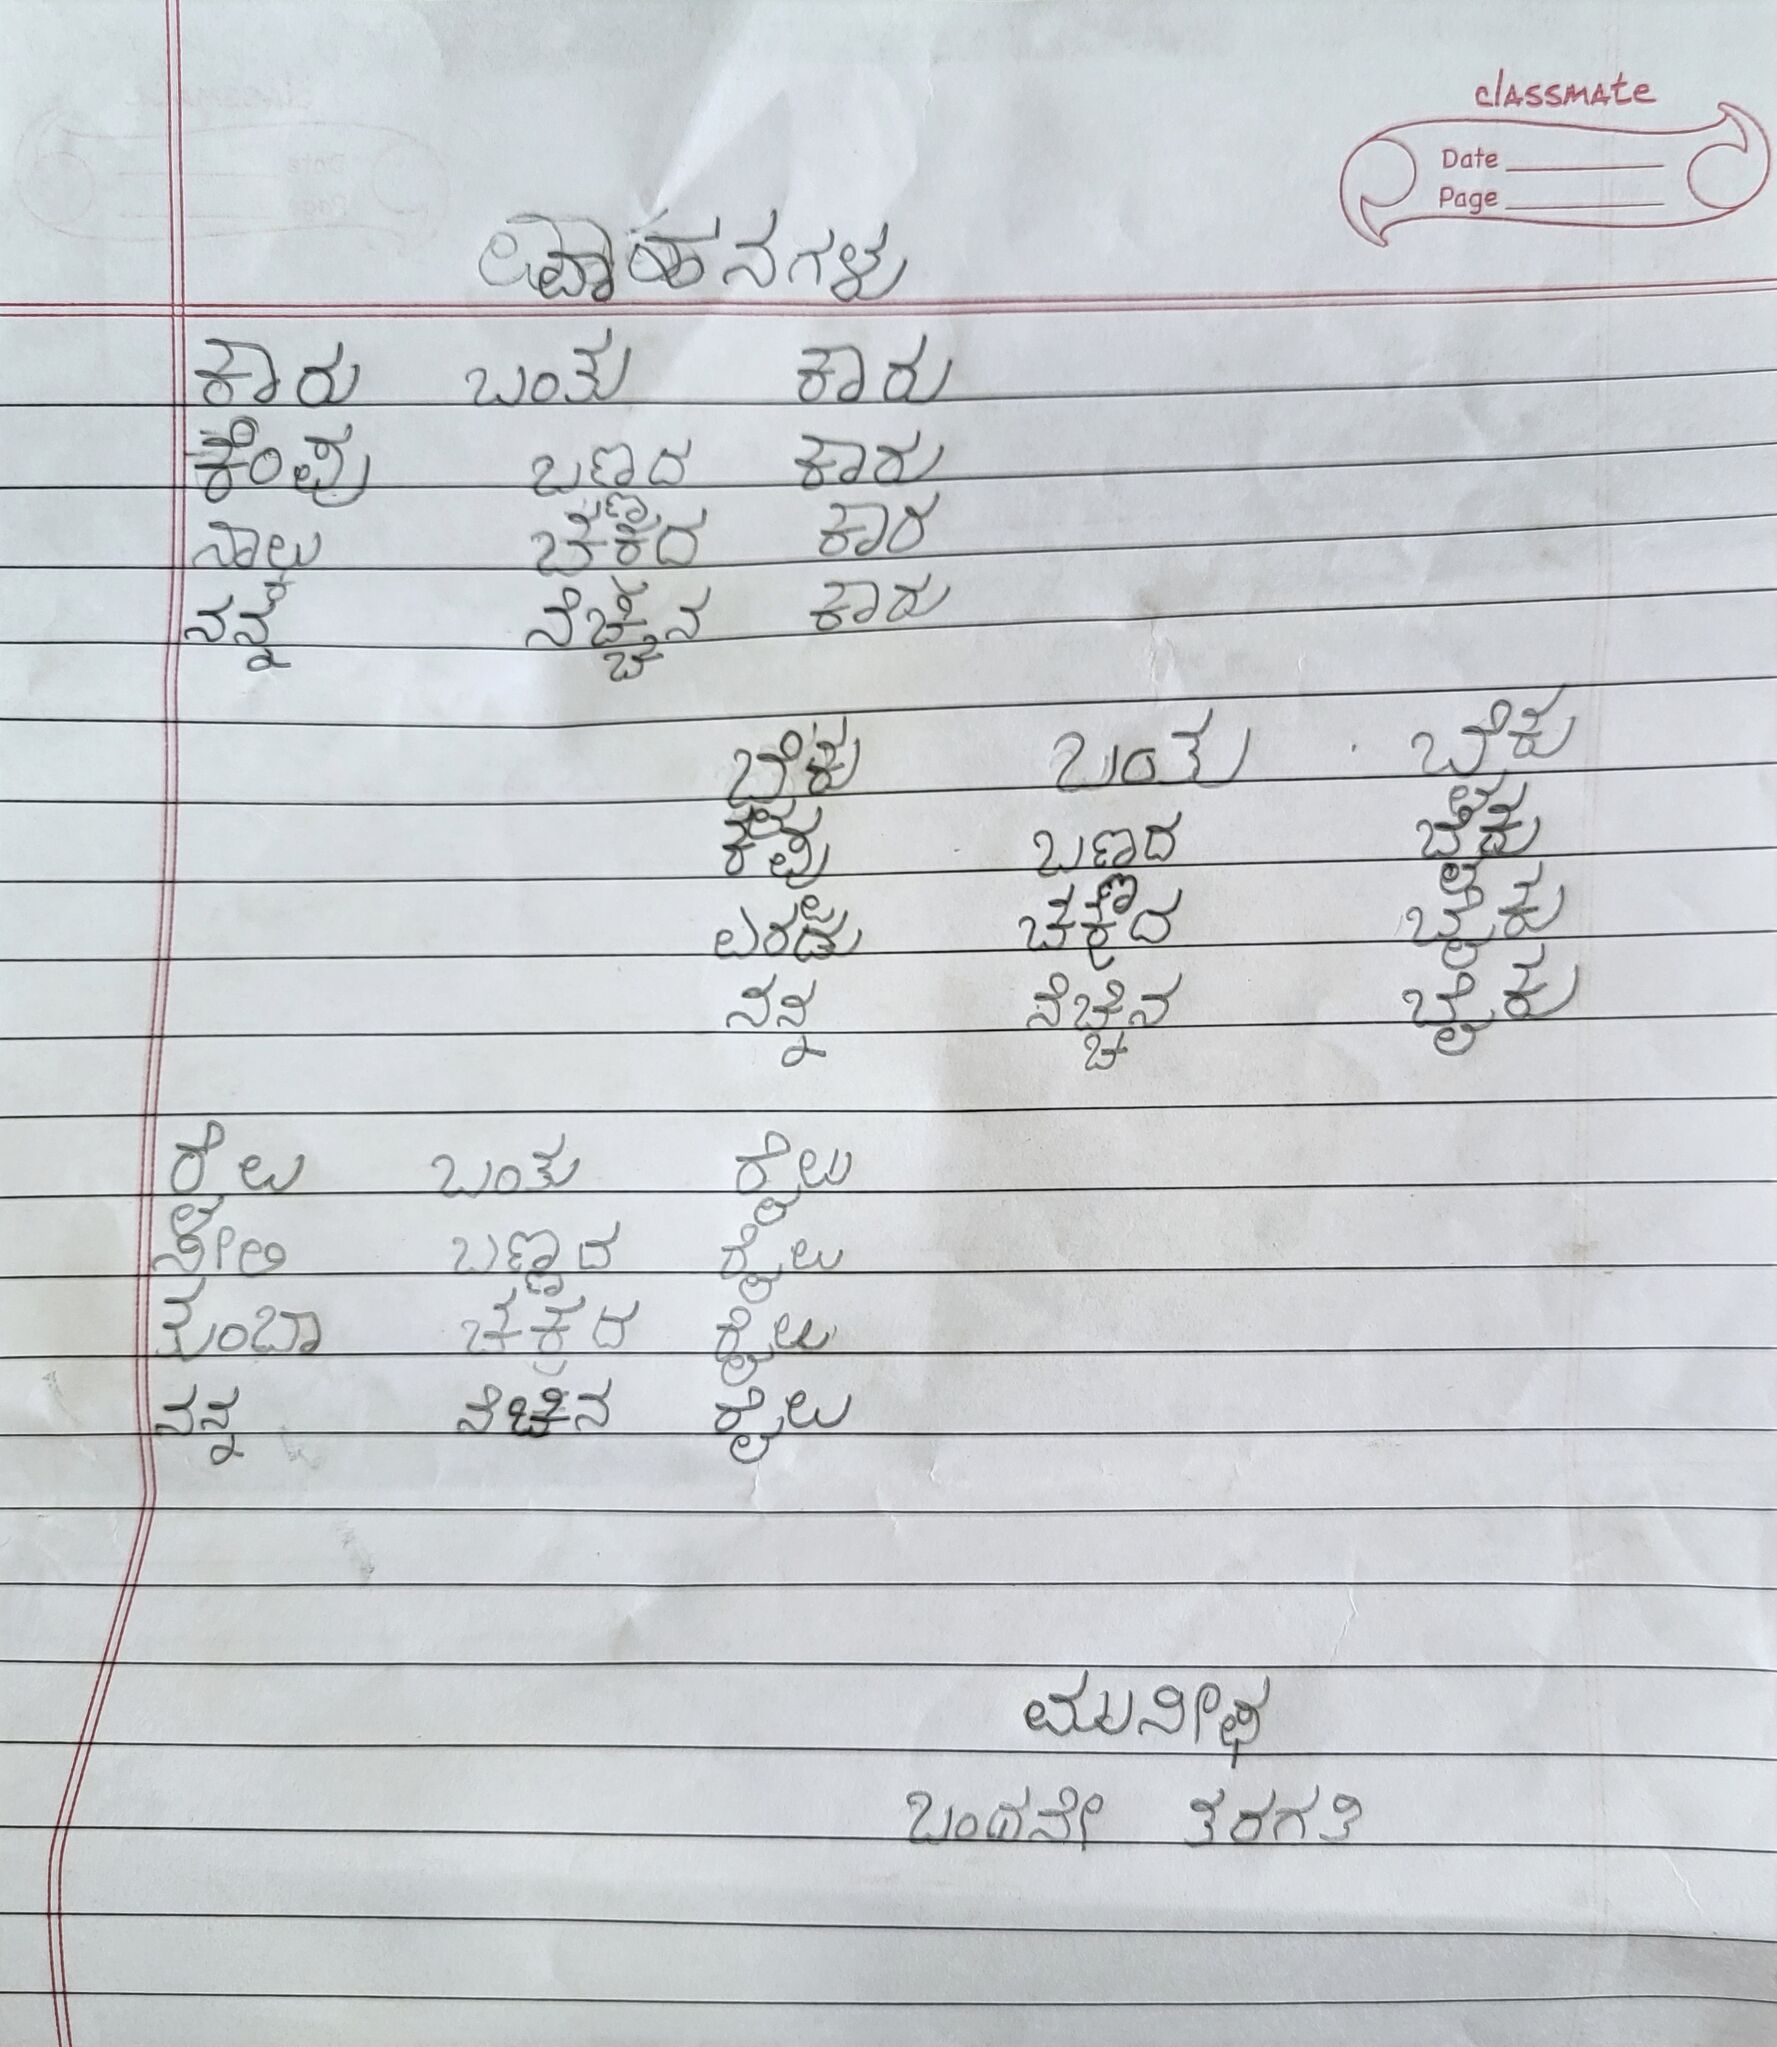 classmate
Date
Page
ವಾಹನಗಳು
ಕಾರು ಬಂತು ಕಾರು
ಕೆಂಪು ಬಣ್ಣದ ಕಾರು
ನಾಲ್ಕು ಚಕ್ರದ ಕಾರ
ನನ್ನ ನೆಚ್ಚಿನ ಕಾರು
ಬೈಕು ಬಂತು ಬೈಕು
ಕಪ್ಪು ಬಣ್ಣದ ಬೈಕು
ಎರಡು ಚಕ್ರದ ಬೈಕು
ನನ್ನ ನೆಚ್ಚಿನ ಬೈಕು
ರೈಲು ಬಂತು ರೈಲು
ನೀಲಿ ಬಣ್ಣದ ರೈಲು
ತುಂಬಾ ಚಕ್ರದ ರೈಲು
ನನ್ನ ನೆಚ್ಚಿನ ರೈಲು
ಮುನೀಫ
ಒಂದನೇ ತರಗತಿ